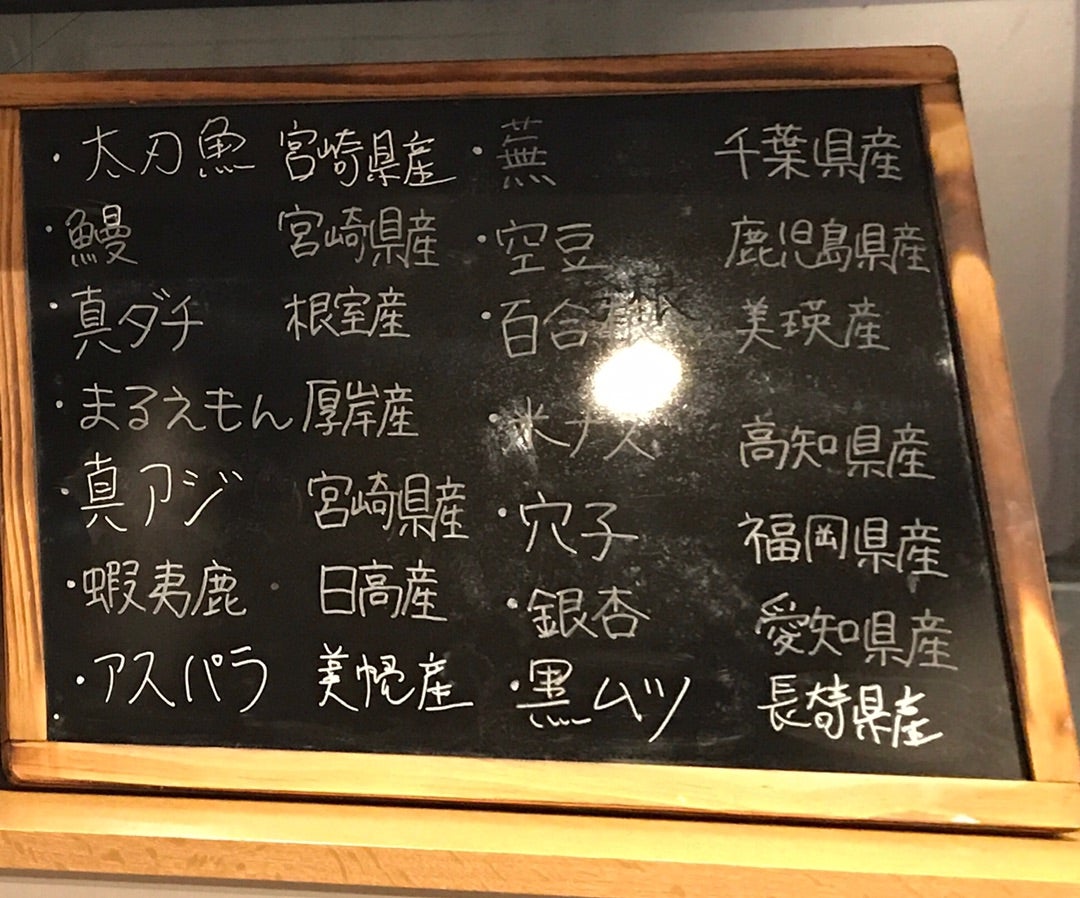 ・太刀魚 宮崎県産
・鰻 宮崎県産
・真ダチ 根室産
・まるえもん 厚岸産
・真アジ 宮崎県産
・蝦夷鹿 日高産
・アスパラ 美幌産
・蕪 千葉県産
・空豆 鹿児島県産
・百合根 美瑛産
・米ナス 高知県産
・穴子 福岡県産
・銀杏 愛知県産
・黒ムツ 長崎県産